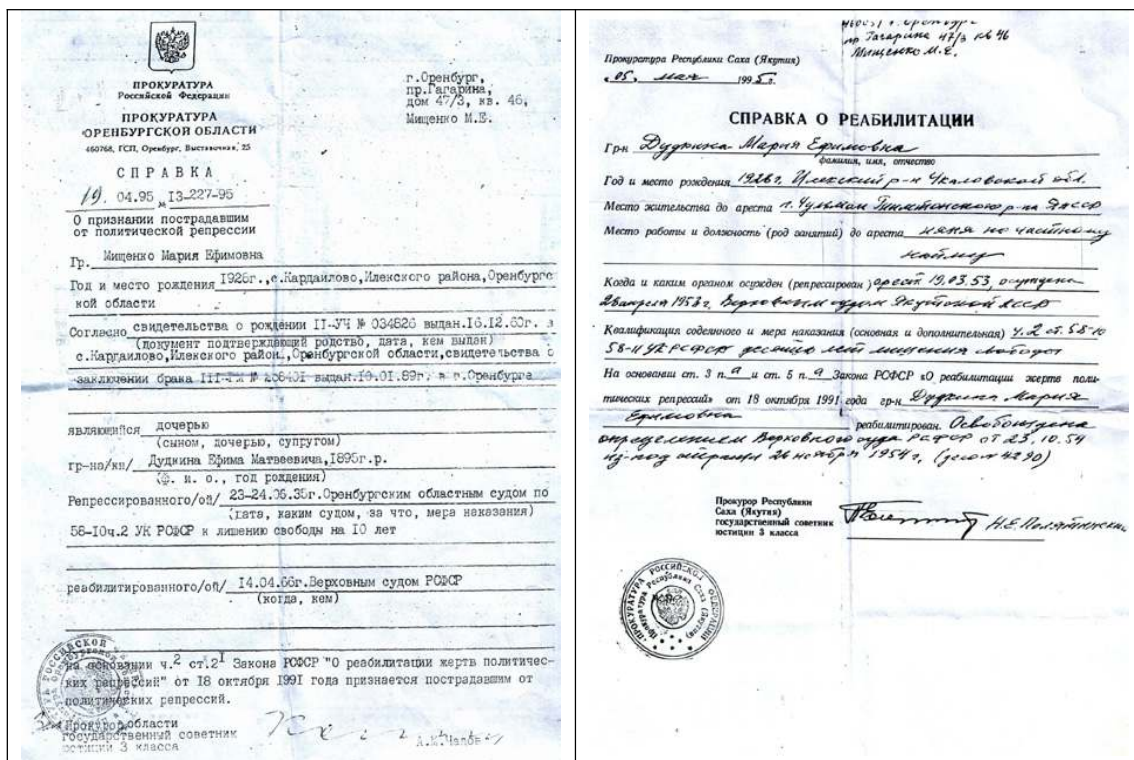 ПРОКУРАТУРА
Российской Федерации
ПРОКУРАТУРА
ОРЕНБУРГСКОЙ ОБЛАСТИ
460768, ГСП, Оренбург, Выставочная, 25
г.Оренбург,
пр.Гагарина,
дом 47/3, кв. 46,
Мищенко М.Е.
СПРАВКА
19. 04.95 № 13-227-95
О признании пострадавшим
от политической репрессии
Гр. Мищенко Мария Ефимовна
Год и место рождения 1926г.,с.Кардаилово,Илекского района,Оренбургс
кой области
Согласно свидетельства о рождении II-УЧ № 034826 выдан.16.12.60г. в
(документ подтверждающий родство, дата, кем выдан)
с.Кардаилово,Илекского район.,Оренбургской области,свидетельства о
заключении брака выдан.10.01.89г. в г.Оренбурге
являющийся дочерью
(сыном, дочерью, супругом)
гр-на/ки/ Дудкина Ефима Матвеевича,1895г.р.
(ф. и. о., год рождения)
Репрессированного/ой/ 23-24.06.35г.Оренбургским областным судом по
(дата, каким судом, за что, мера наказания)
58-10ч.2 УК РСФСР к лишению свободы на 10 лет
реабилитированного/ой/ 14.04.66г.Верховным судом РСФСР
(когда, кем)
на основании ч.2 ст.2¹ Закона РСФСР "О реабилитации жертв политичес-
ких репрессий" от 18 октября 1991 года признается пострадавшим от
политических репрессий.
Прокурор области
государственный советник
юстиции 3 класса
г. Оренбург
пр Гагарина 47/3 кв 46
Мищенко М.Е.
Прокуратура Республики Саха (Якутия)
"05" мая 1995г.
СПРАВКА О РЕАБИЛИТАЦИИ
Гр-н Дудкина Мария Ефимовна
фамилия, имя, отчество
Год и место рождения 1926г. Илекский р-н Чкаловской обл.
Место жительства до ареста п. Чульман Тимптонского р-на ЯАССР
Место работы и должность (род занятий) до ареста няня по частному
найму
Когда и каким органом осужден (репрессирован) арест 19.03.53, осуждена
28 апреля 1953г. Верховным судом Якутской АССР
Квалификация содеянного и мера наказания (основная и дополнительная) ч.2 ст.58-10
58-11 УК РСФСР десять лет лишения свободы
На основании ст. 3 п. а и ст. 5 п. а Закона РСФСР «О реабилитации жертв поли-
тических репрессий» от 18 октября 1991 года гр-н Дудкина Мария
Ефимовна реабилитирован. Освобождена
определением Верховного суда РСФСР от 23.10.54
из-под стражи 26 ноября 1954г. (дело № 4290)
Прокурор Республики
Саха (Якутия)
государственный советник
юстиции 3 класса
ПРОКУРАТУРА РОССИЙСКОЙ ФЕДЕРАЦИИ
Прокуратура Республики Саха (Якутия)